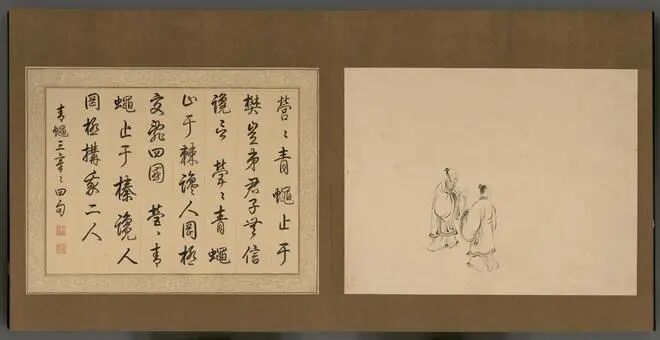 營〻青蠅止于
樊豈弟君子無信
讒言 營〻青蠅
止于棘讒人罔極
交亂四國 營〻青
蠅止于榛讒人
罔極構我二人
青蠅三章〻四句